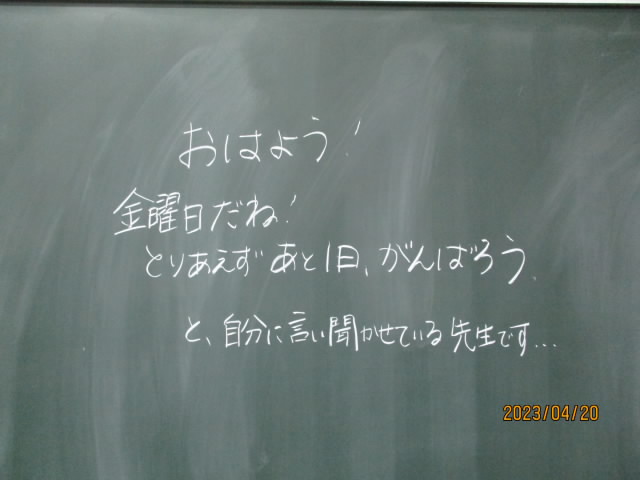 おはよう!
金曜日だね!
とりあえずあと1日、がんばろう。
と、自分に言い聞かせている先生です...
2023/04/20